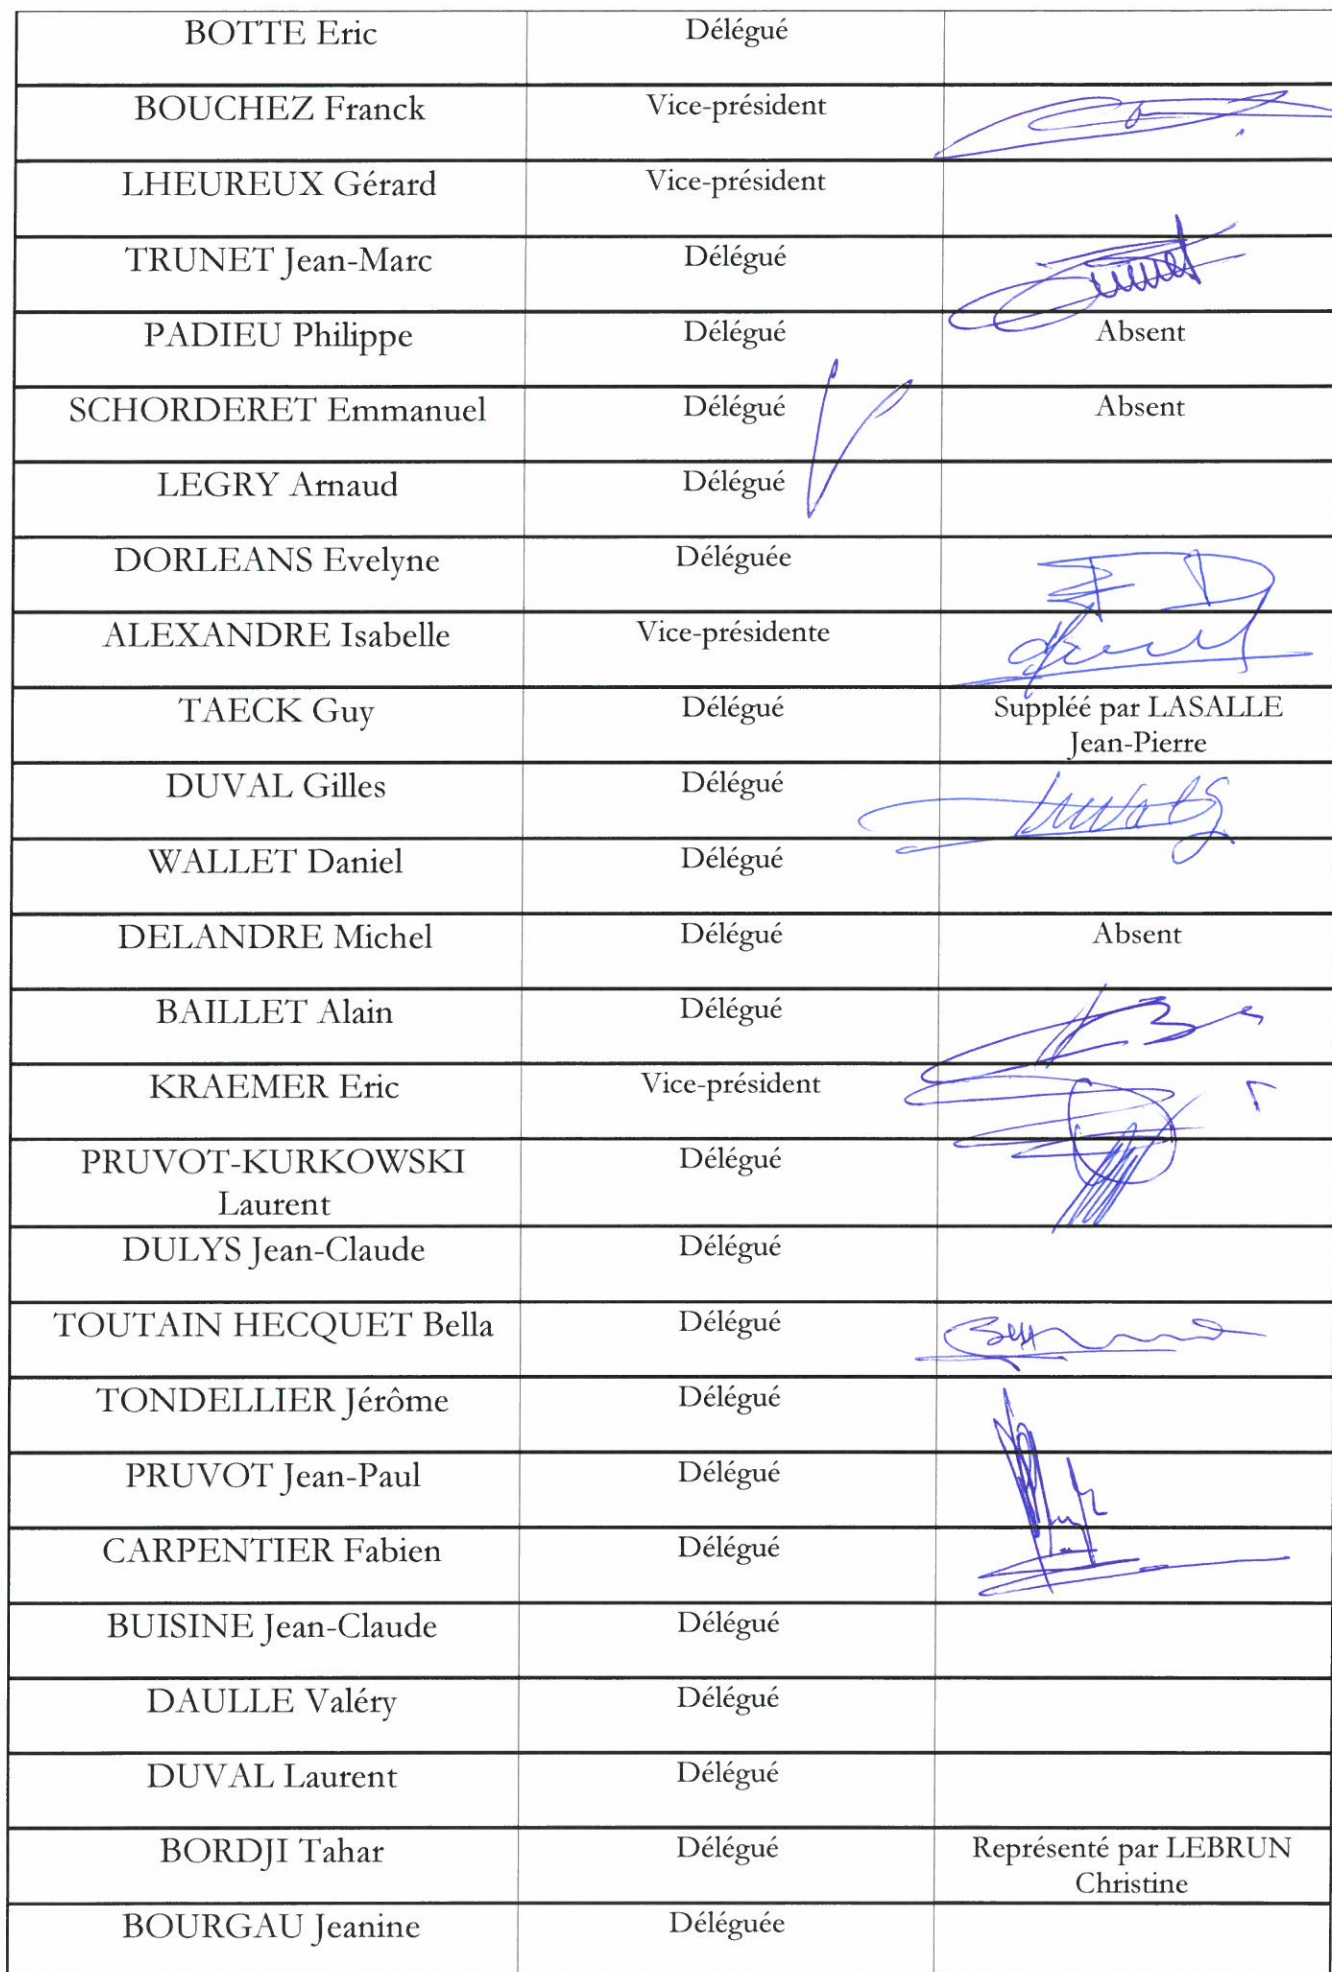 BOTTE Eric Délégué
BOUCHEZ Franck Vice-président
LHEUREUX Gérard Vice-président
TRUNET Jean-Marc Délégué
PADIEU Philippe Délégué Absent
SCHORDERET Emmanuel Délégué Absent
LEGRY Arnaud Délégué
DORLEANS Evelyne Déléguée
ALEXANDRE Isabelle Vice-présidente
TAECK Guy Délégué Suppléé par LASALLE
Jean-Pierre
DUVAL Gilles Délégué
WALLET Daniel Délégué
DELANDRE Michel Délégué Absent
BAILLET Alain Délégué
KRAEMER Eric Vice-président
PRUVOT-KURKOWSKI Délégué
Laurent
DULYS Jean-Claude Délégué
TOUTAIN HECQUET Bella Délégué
TONDELLIER Jérôme Délégué
PRUVOT Jean-Paul Délégué
CARPENTIER Fabien Délégué
BUISINE Jean-Claude Délégué
DAULLE Valéry Délégué
DUVAL Laurent Délégué
BORDJI Tahar Délégué Représenté par LEBRUN
Christine
BOURGAU Jeanine Déléguée